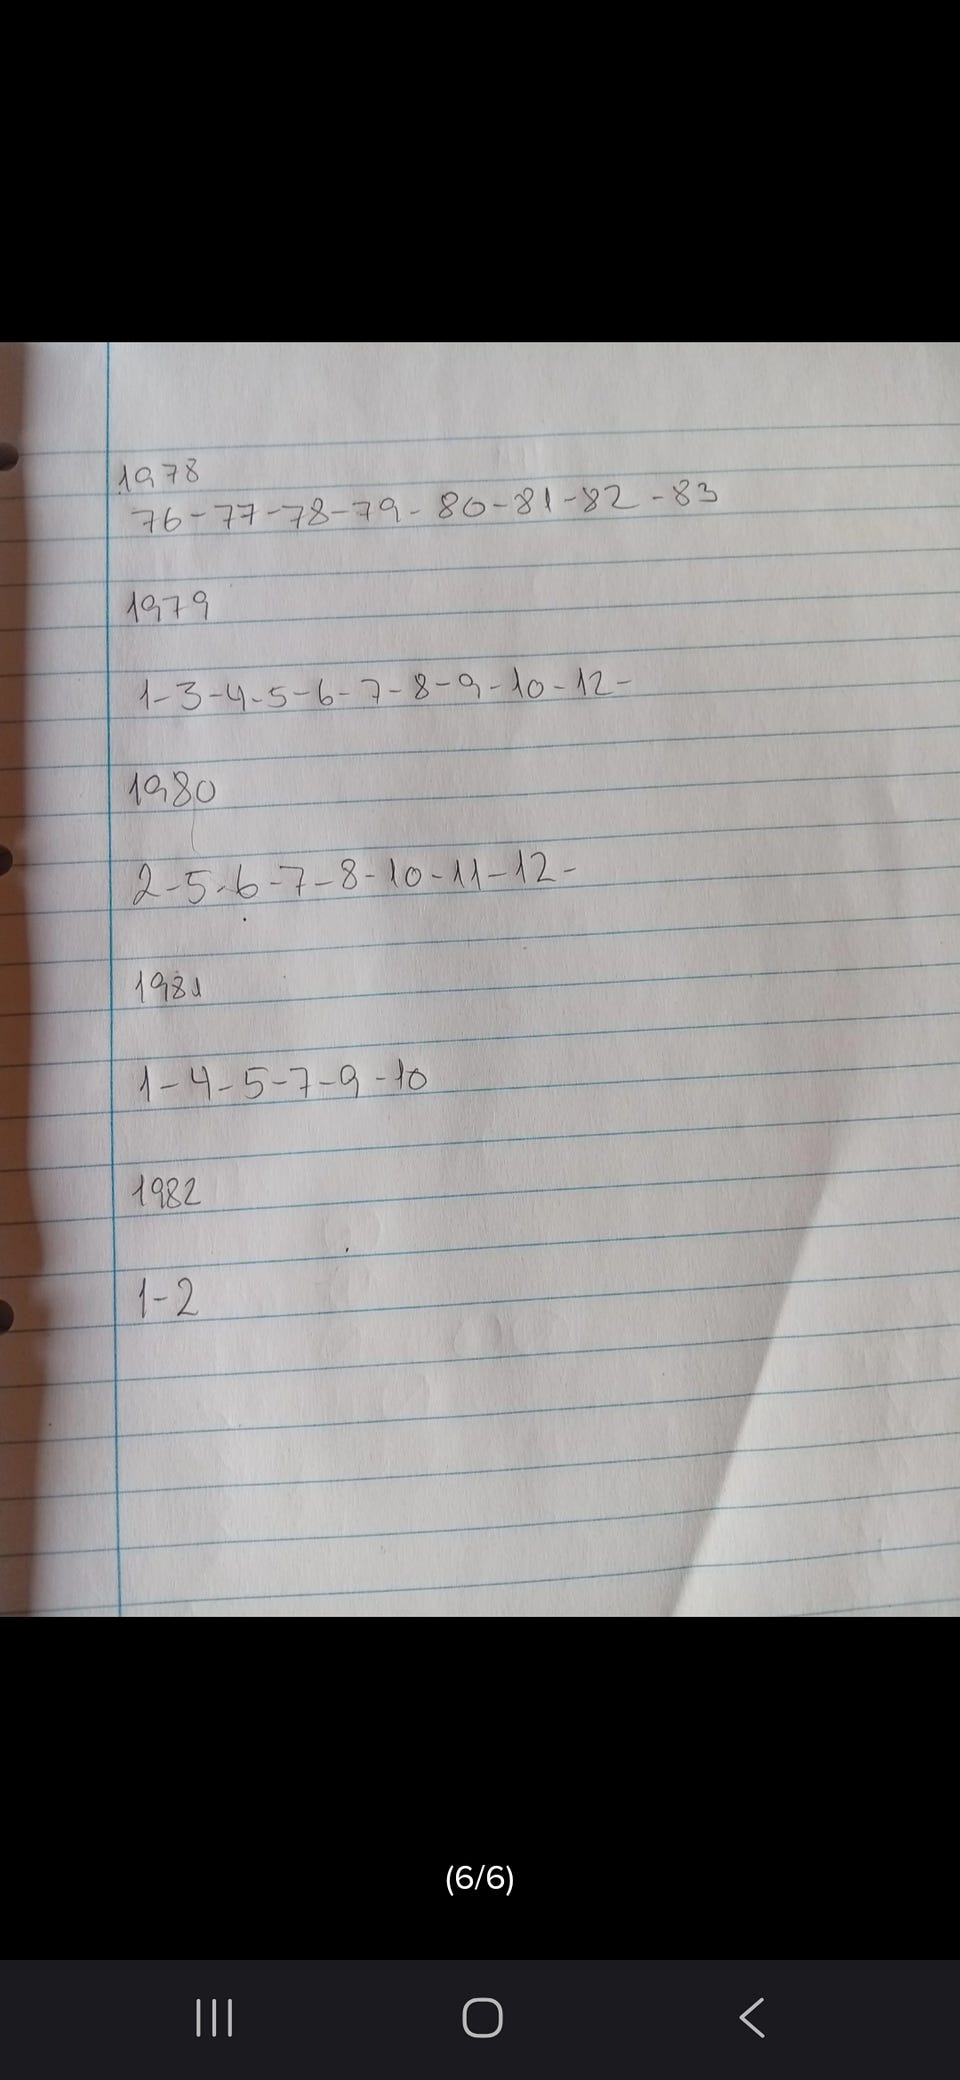 1978
76-77-78-79-80-81-82-83
1979
1-3-4-5-6-7-8-9-10-12-
1980
2-5-6-7-8-10-11-12-
1981
1-4-5-7-9-10
1982
1-2
(6/6)